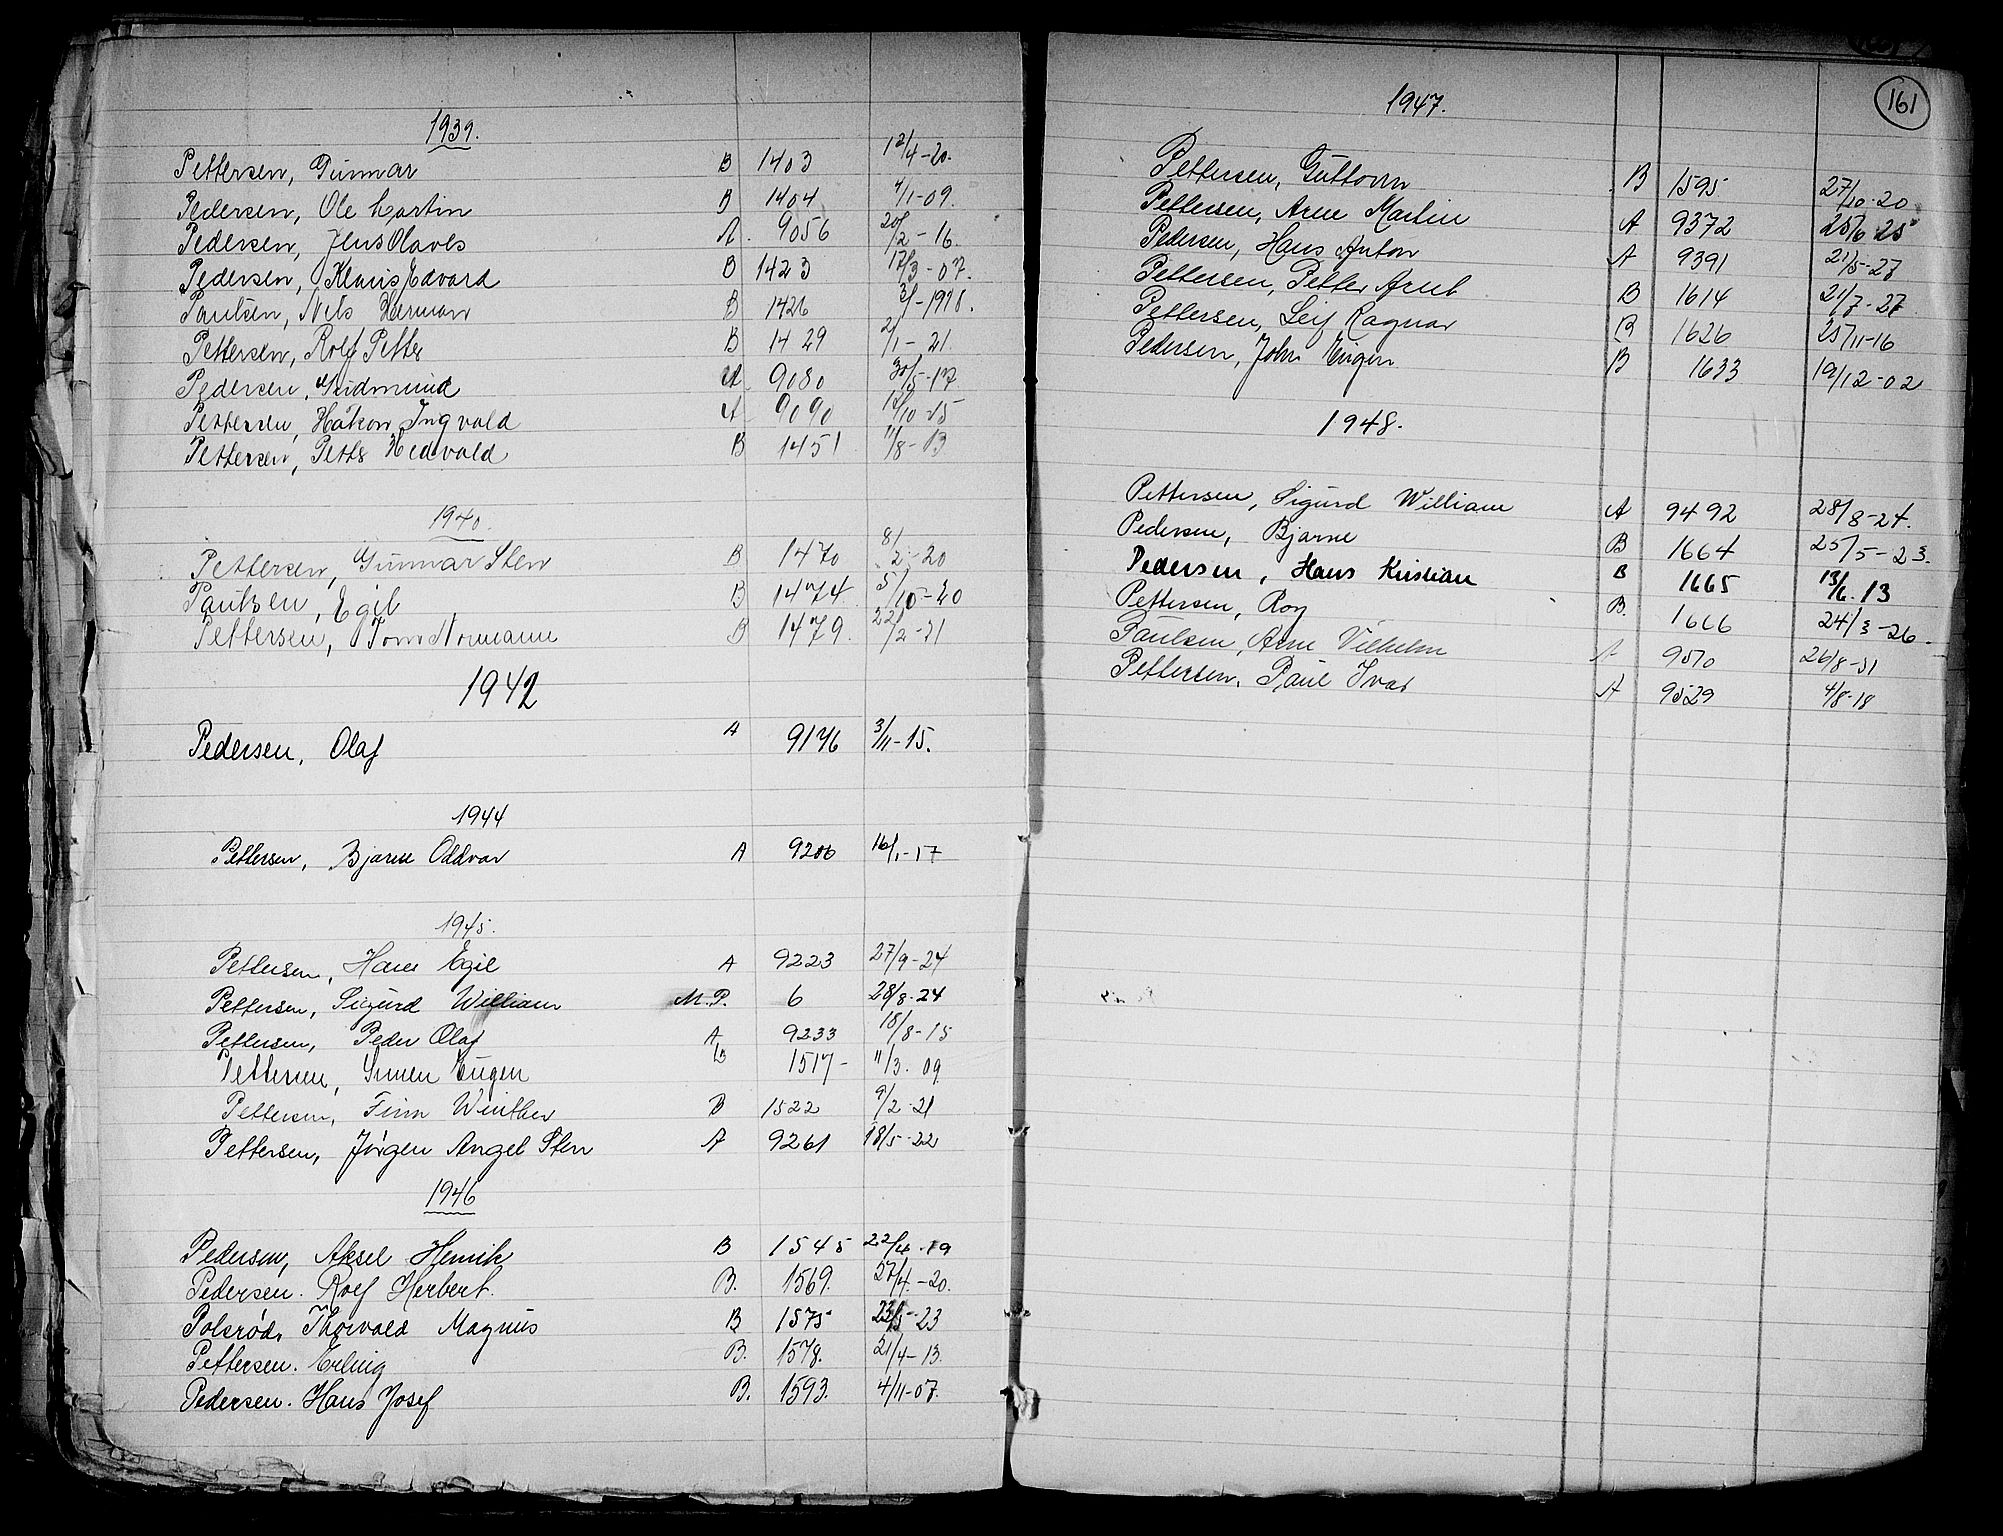 1939.
Pettersen, Gunnar B 1403 12/4-20.
Pedersen, Ole Martin B 1404 4/1-09.
Pedersen, Jens Olaves A. 9056 20/2-16.
Pedersen, Klaus Edvard B 1423 17/3-07.
Paulsen, Nils Herman B 1426
Pettersen, Rolf Petter B 1429 2/1-21
Pedersen, Gudmund A. 9080 30/5-17
Pettersen, Håkon Ingvald A 9090 12/10-15
Pettersen, Petter Hedvald B 1451 11/8-13
1940.
Pettersen, Gunnar Sten B 1470 8/2-20
Paulsen, Egil B 1474 5/10-20
Pettersen, Tom Normann B 1479. 22/2-21
1942
Pedersen, Olaf A 9176 3/11-15.
1944
Pettersen, Bjarne Oddvar A 9206 16/1-17
1945.
Pettersen, Hans Egil A 9223 27/9-24
Pettersen, Sigurd William M.P. 6 28/8-24
Pettersen, Peder Olaf A 9233 18/8-15
Pettersen, Simen Eugen B 1517- 11/3-09
Pettersen, Finn Winther B 1522 9/2-21
Pettersen, Jörgen Angel Sten A 9261 18/5-22
1946
Pedersen, Aksel Henrik B 1545 22/4-19
Pedersen. Rolf Herbert. B. 1569. 27/4-20.
Polsrød, Thorvald Magnus B 1575 23/5-23
Pettersen. Erling B. 1578. 21/4-13.
Pedersen. Hans Josef B. 1593. 4/11-07.
161
1947.
Pettersen, Guttorm B 1595 27/10-20
Pettersen, Arne Martin A 9372 25/6 25
Pedersen, Hans Anton A 9391 21/5-27
Pettersen, Petter Arnt B 1614 21/7-27
Pettersen, Leif Ragnar B 1626 25/11-16
Pedersen, John Eugen B 1633 19/12-02
1948.
Pettersen, Sigurd William A 9492 28/8-24.
Pedersen, Bjarne B 1664 25/5-23.
Pedersen, Hans Kristian B 1665 13/6.13
Pettersen, Roy B. 1666 24/3-26.
Paulsen, Arne Vilhelm A 9510 26/8-31
Pettersen, Paul Ivar A 9529 4/8-18